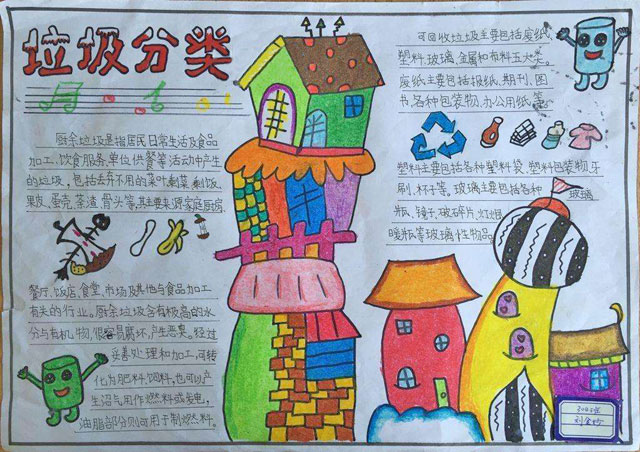 垃圾分类
厨余垃圾是指居民日常生活及食品
加工、饮食服务、单位供餐等活动中产生
的垃圾，包括丢弃不用的菜叶、剩菜、剩饭、
果皮、蛋壳、茶渣、骨头等，其主要来源家庭厨房、
餐厅、饭店、食堂、市场及其他与食品加工
有关的行业。厨余垃圾含有极高的水
分与有机物，很容易腐坏，产生恶臭。经过
妥善处理和加工，可转
化为肥料、饲料，也可以产
生沼气用作燃料或发电，
油脂部分则可用于制燃料。
可回收垃圾主要包括废纸、
塑料、玻璃、金属和布料五大类。
废纸主要包括报纸、期刊、图
书、各种包装物、办公用纸等
塑料主要包括各种塑料袋、塑料包装物、牙
刷、杯子等，玻璃主要包括各种
玻璃
瓶、镜子、破碎片、灯泡、
暖瓶等玻璃性物品